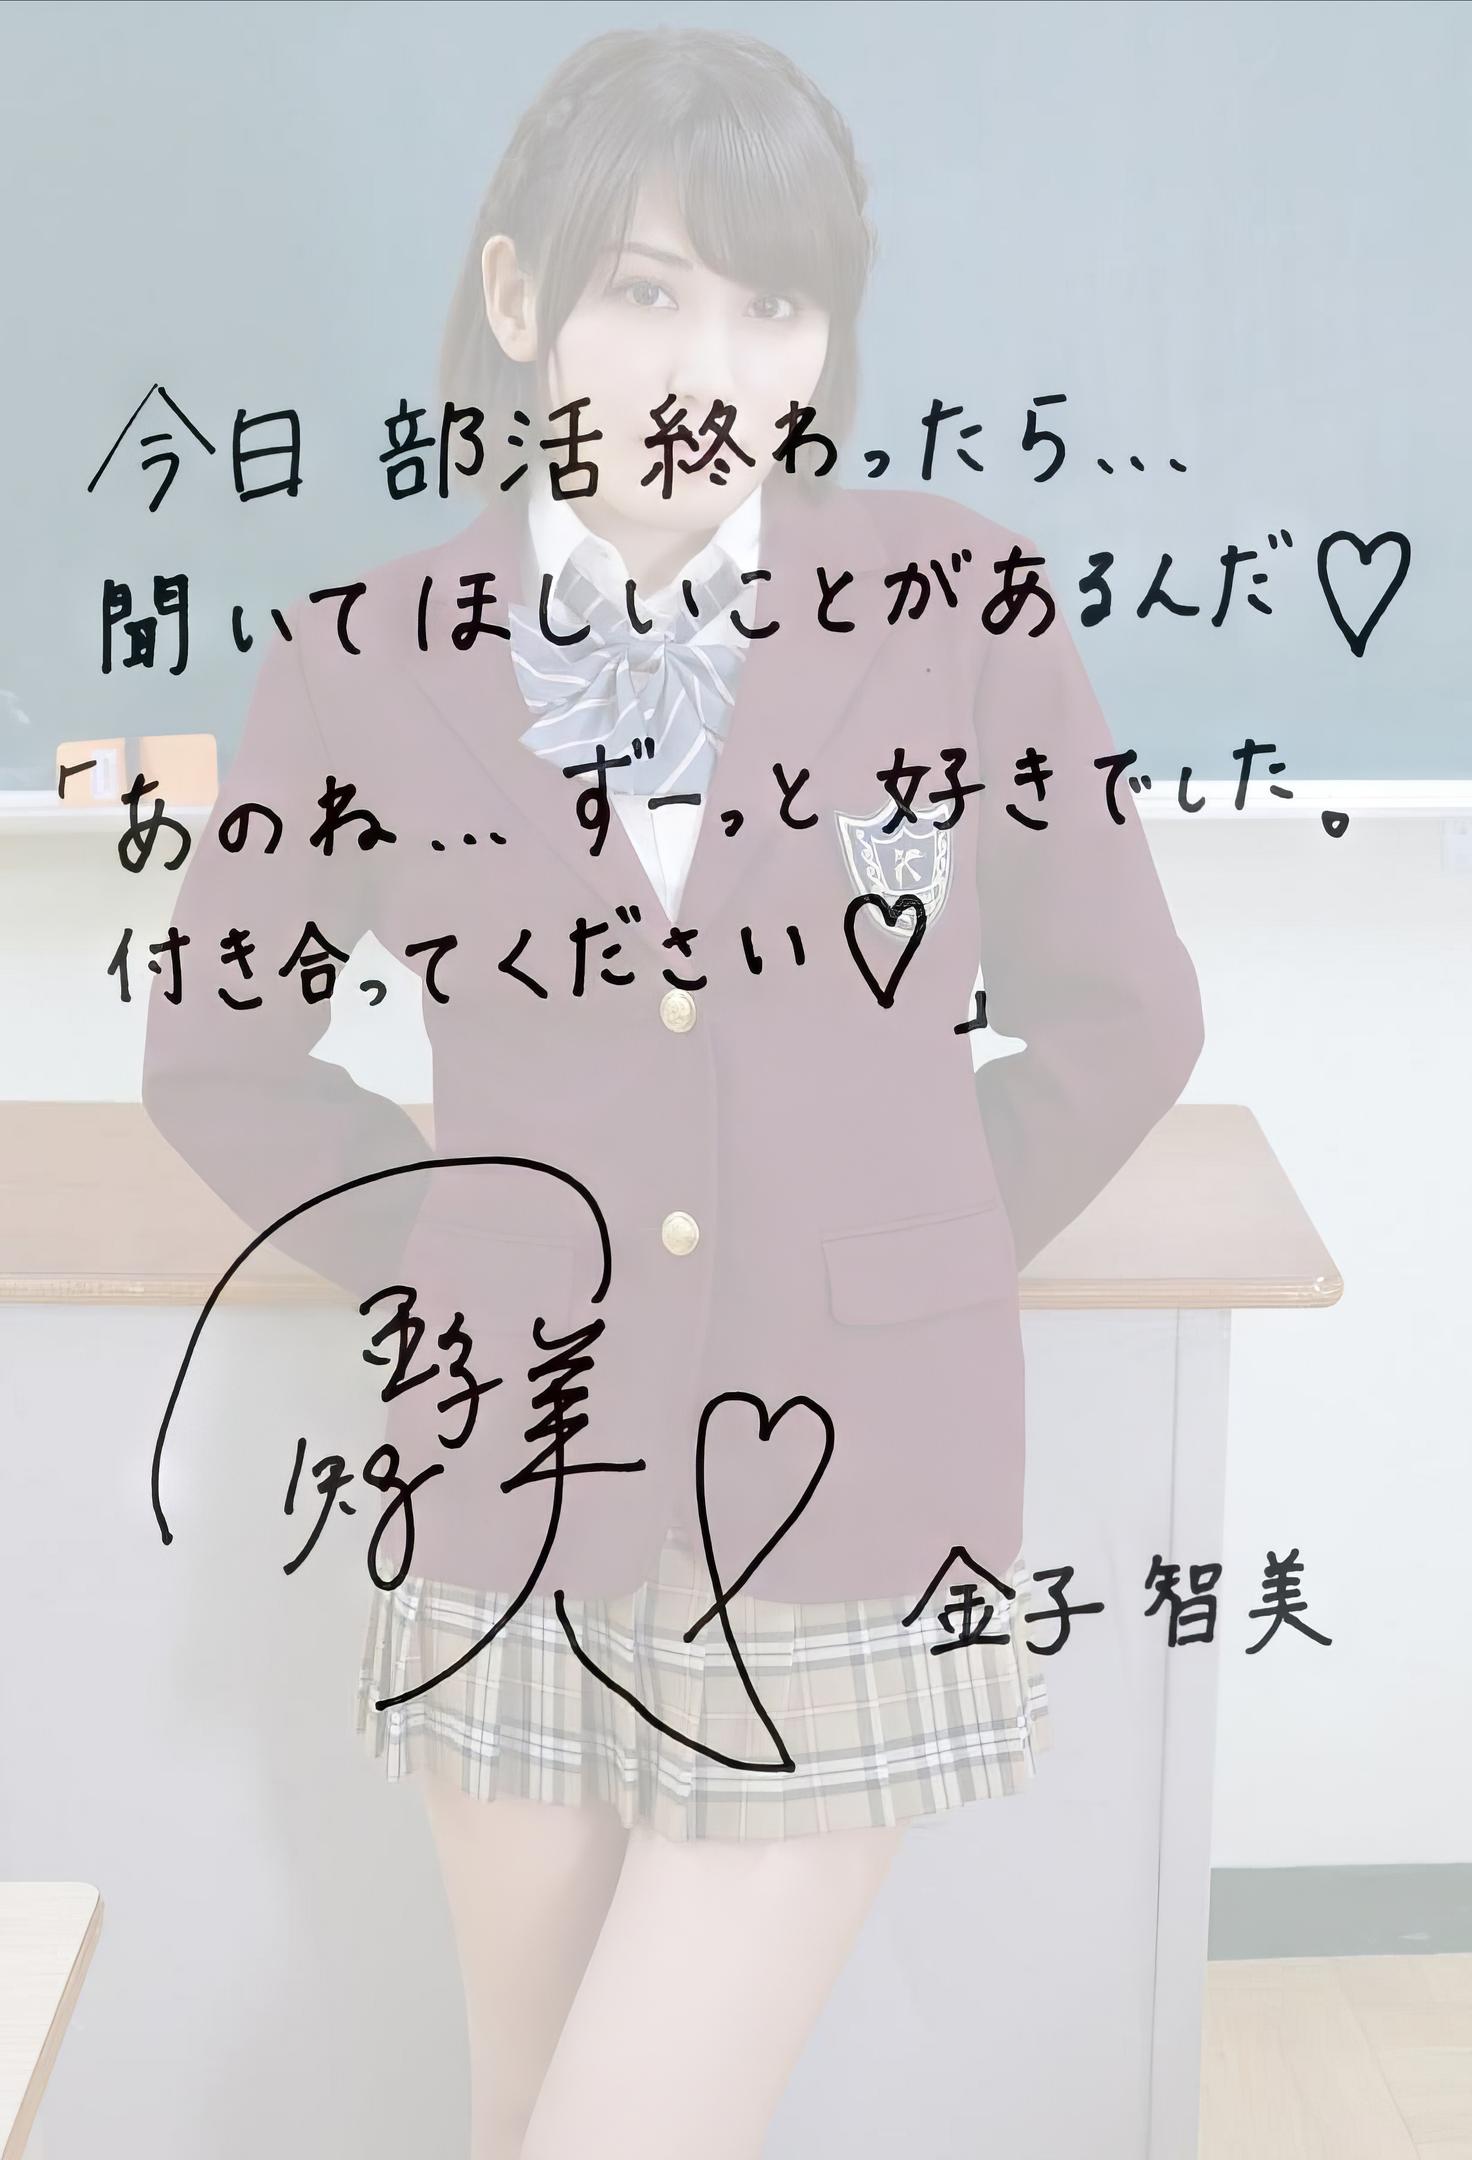 今日 部活 終わったら...
聞いてほしいことがあるんだ♡
「あのね... ずーっと 好きでした。
付き合ってください♡」
金子
智美
金子 智美
K